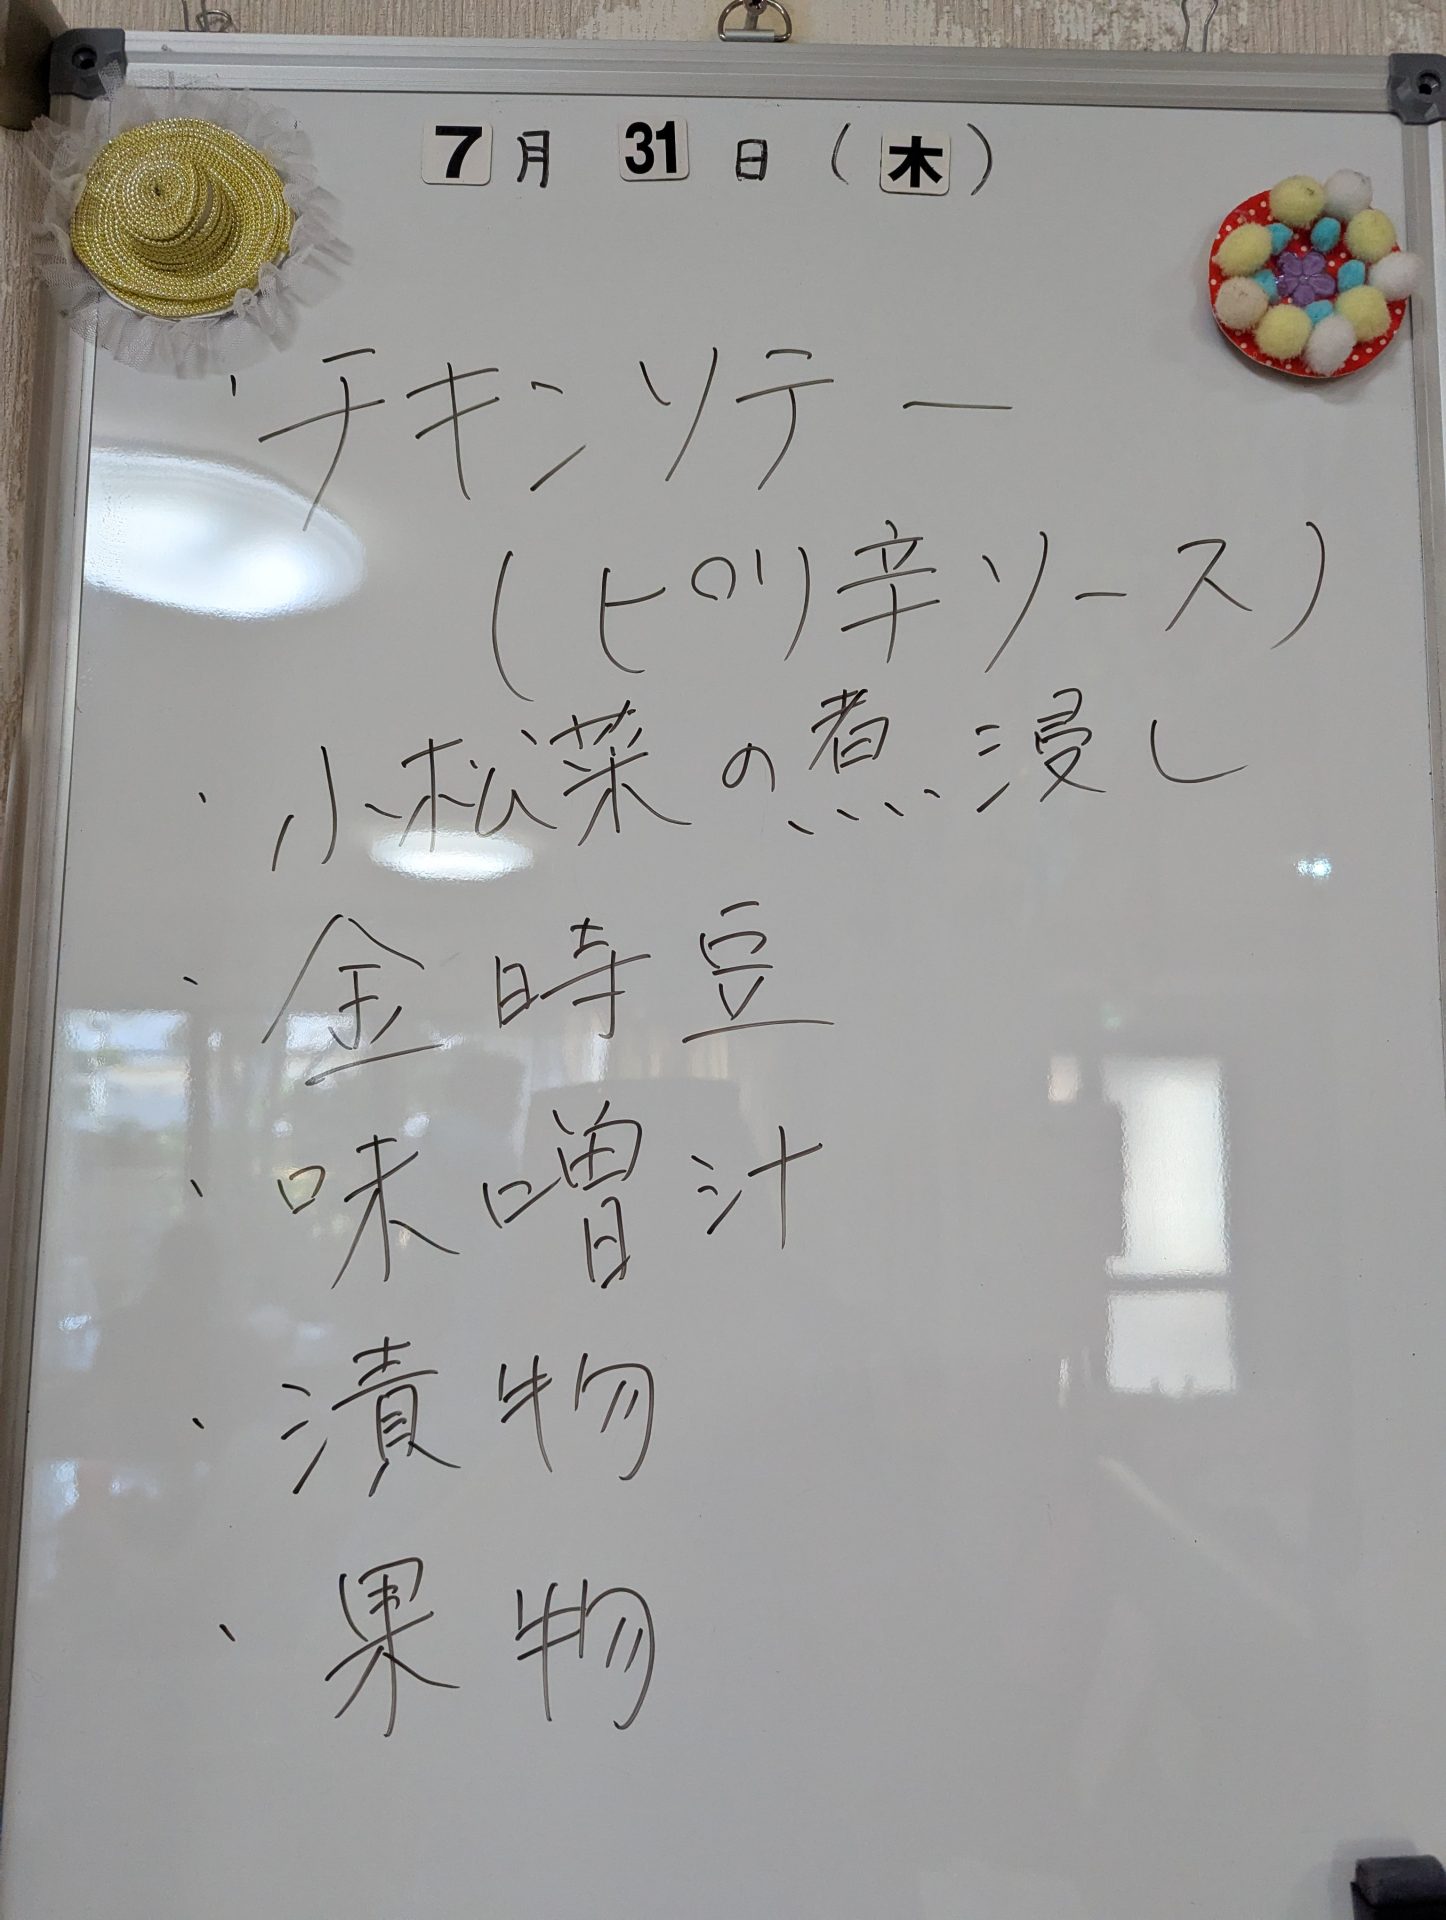 7月 31日（木）
・チキンソテー
（ピリ辛ソース）
・小松菜の煮浸し
・金時豆
・味噌汁
・漬物
・果物